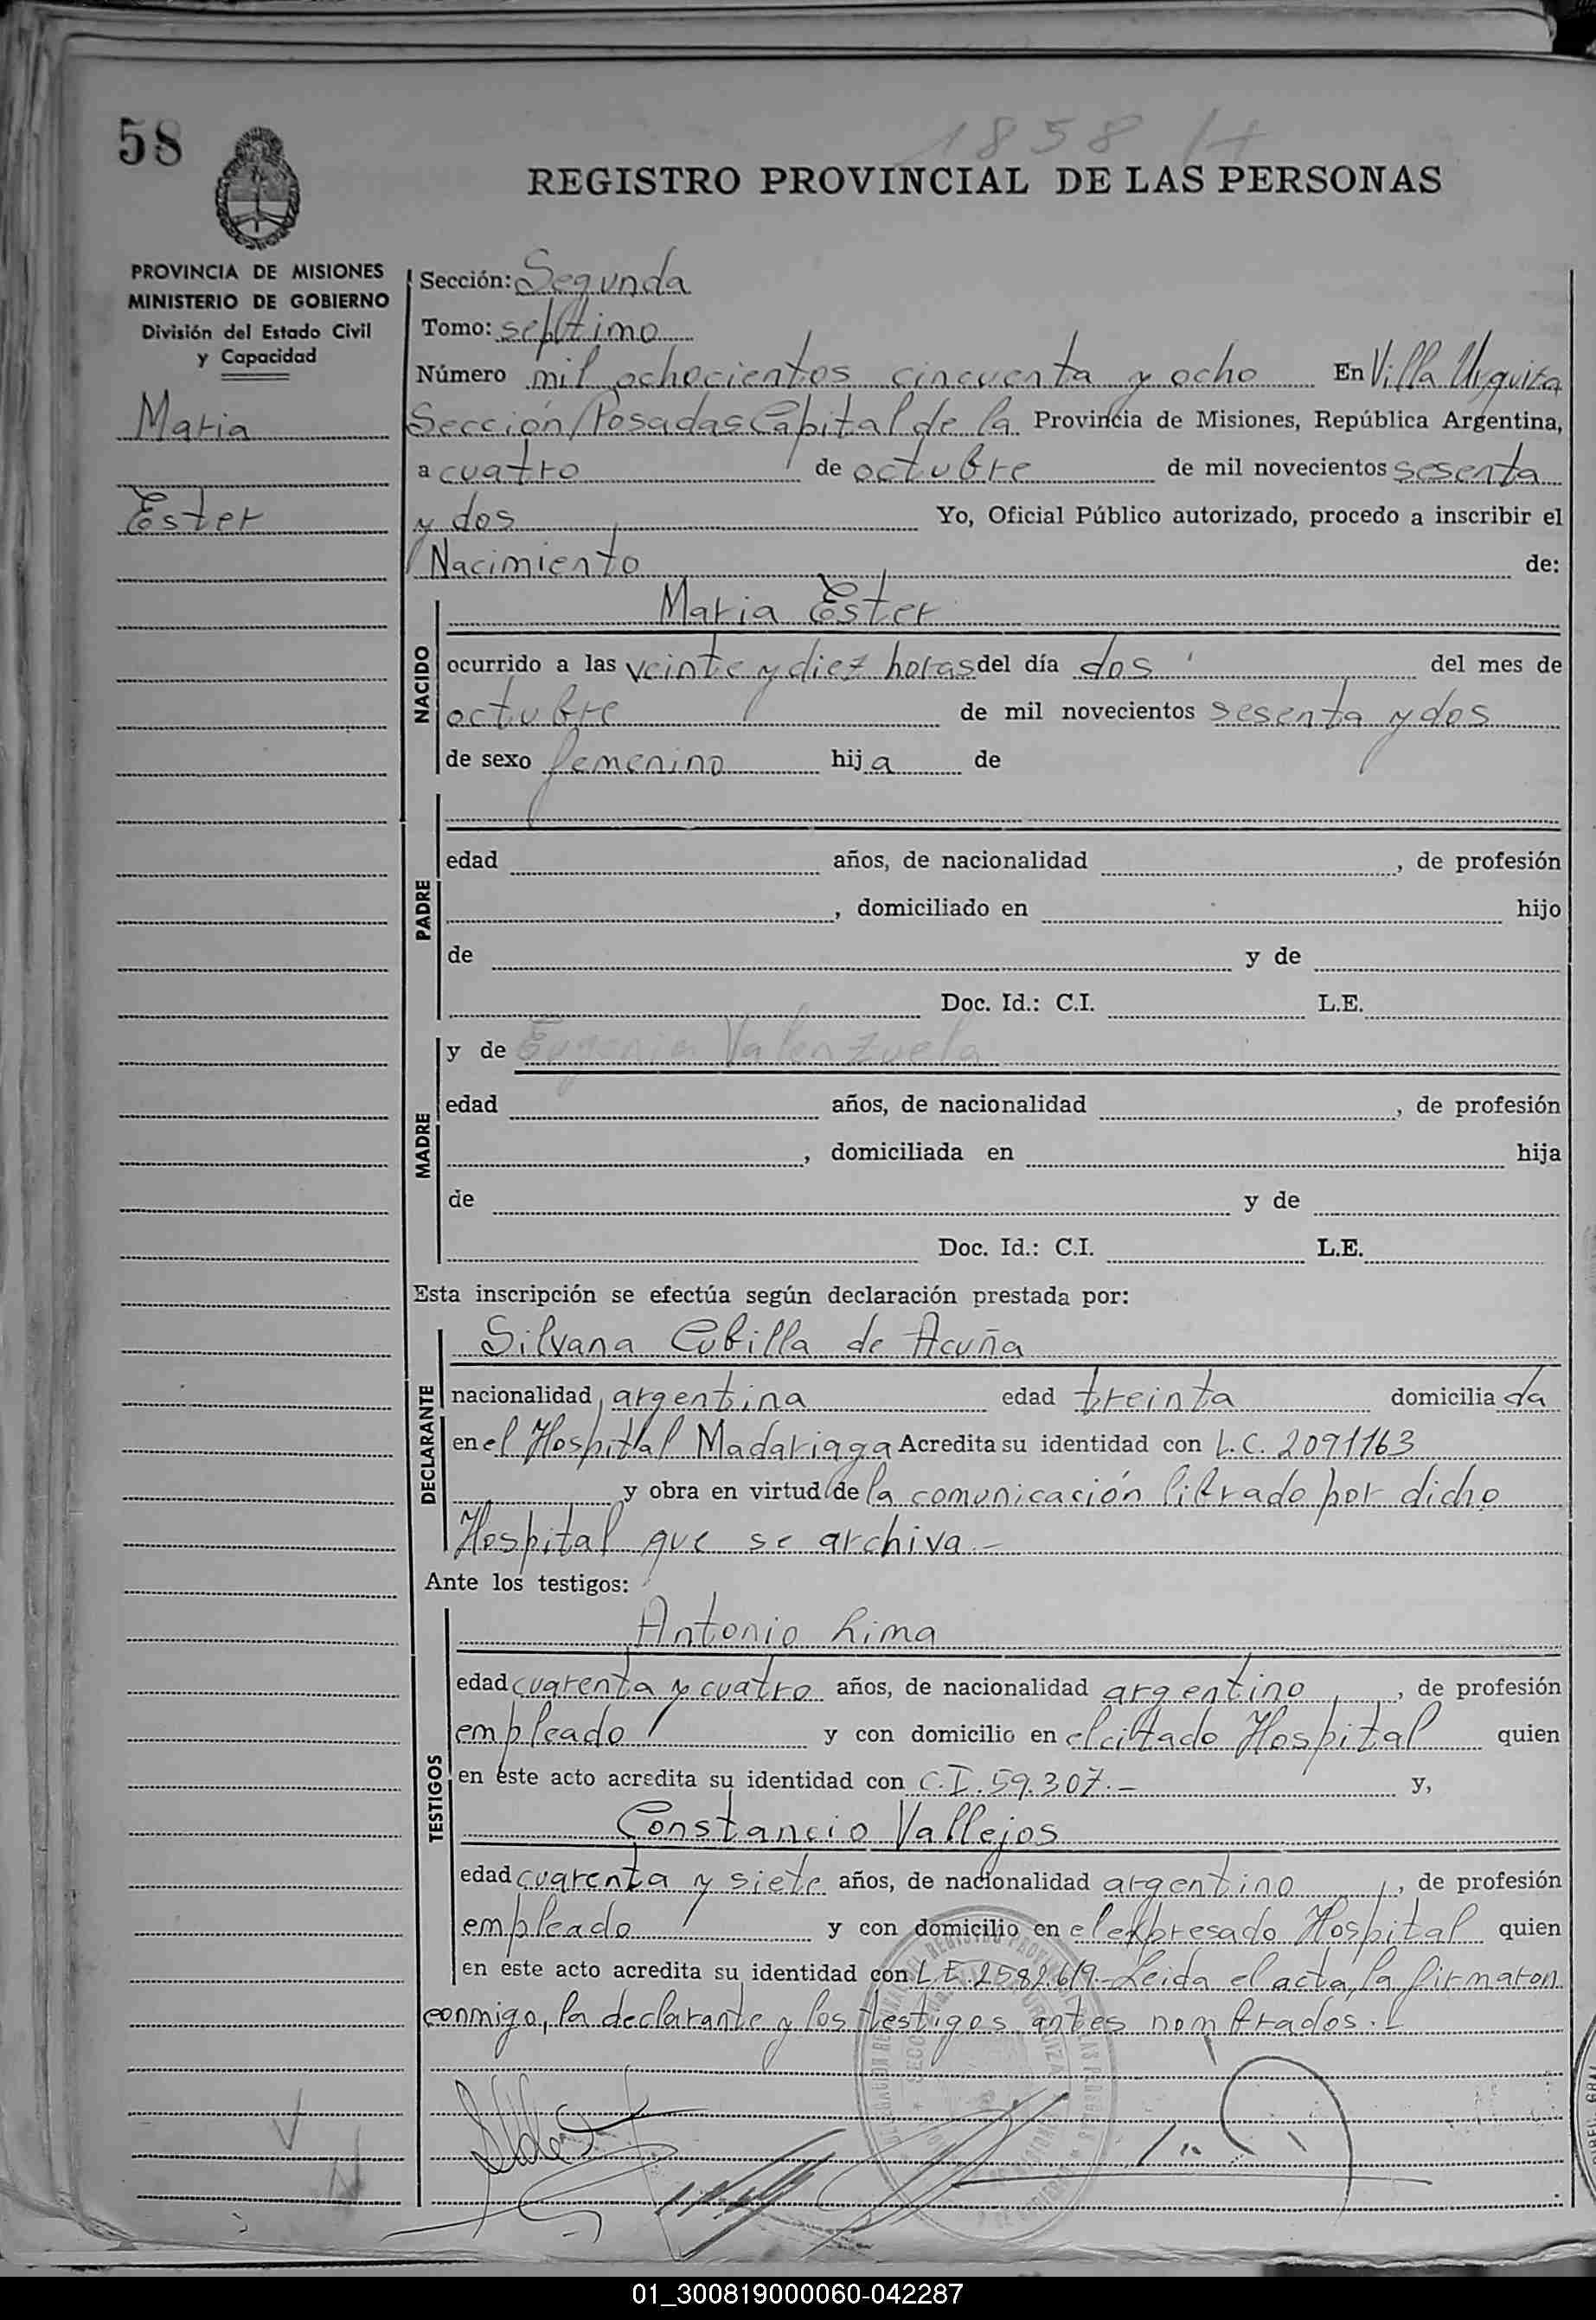 1858 H
58
REGISTRO PROVINCIAL DE LAS PERSONAS
PROVINCIA DE MISIONES
MINISTERIO DE GOBIERNO
División del Estado Civil
y Capacidad
Maria
Ester
Sección: Segunda
Tomo: séptimo
Número mil ochocientos cincuenta y ocho En Villa Urquiza
Sección, Posadas Capital de la Provincia de Misiones, República Argentina,
a cuatro de octubre de mil novecientos sesenta
y dos Yo, Oficial Público autorizado, procedo a inscribir el
Nacimiento de:
NACIDO
Maria Ester
ocurrido a las veinte y diez horas del día dos del mes de
octubre de mil novecientos sesenta y dos
de sexo femenino hija de
PADRE
edad años, de nacionalidad , de profesión
, domiciliado en hijo
de y de
Doc. Id.: C.I. L.E.
MADRE
y de Eugenia Valenzuela
edad años, de nacionalidad , de profesión
, domiciliada en hija
de y de
Doc. Id.: C.I. L.E.
Esta inscripción se efectúa según declaración prestada por:
DECLARANTE
Silvana Cubilla de Acuña
nacionalidad argentina edad treinta domiciliada
en el Hospital Madariaga Acredita su identidad con L.C. 2091163
y obra en virtud de la comunicación librado por dicho
Hospital que se archiva.-
Ante los testigos:
TESTIGOS
Antonio Lima
edad cuarenta y cuatro años, de nacionalidad argentino, de profesión
empleado y con domicilio en el citado Hospital quien
en este acto acredita su identidad con C.I. 59.307.- y,
Constancio Vallejos
edad cuarenta y siete años, de nacionalidad argentino, de profesión
empleado y con domicilio en el expresado Hospital quien
en este acto acredita su identidad con L.E. 2582619.- Leida el acta, la firmaron
conmigo, la declarante y los testigos antes nombrados.-
01_300819000060-042287